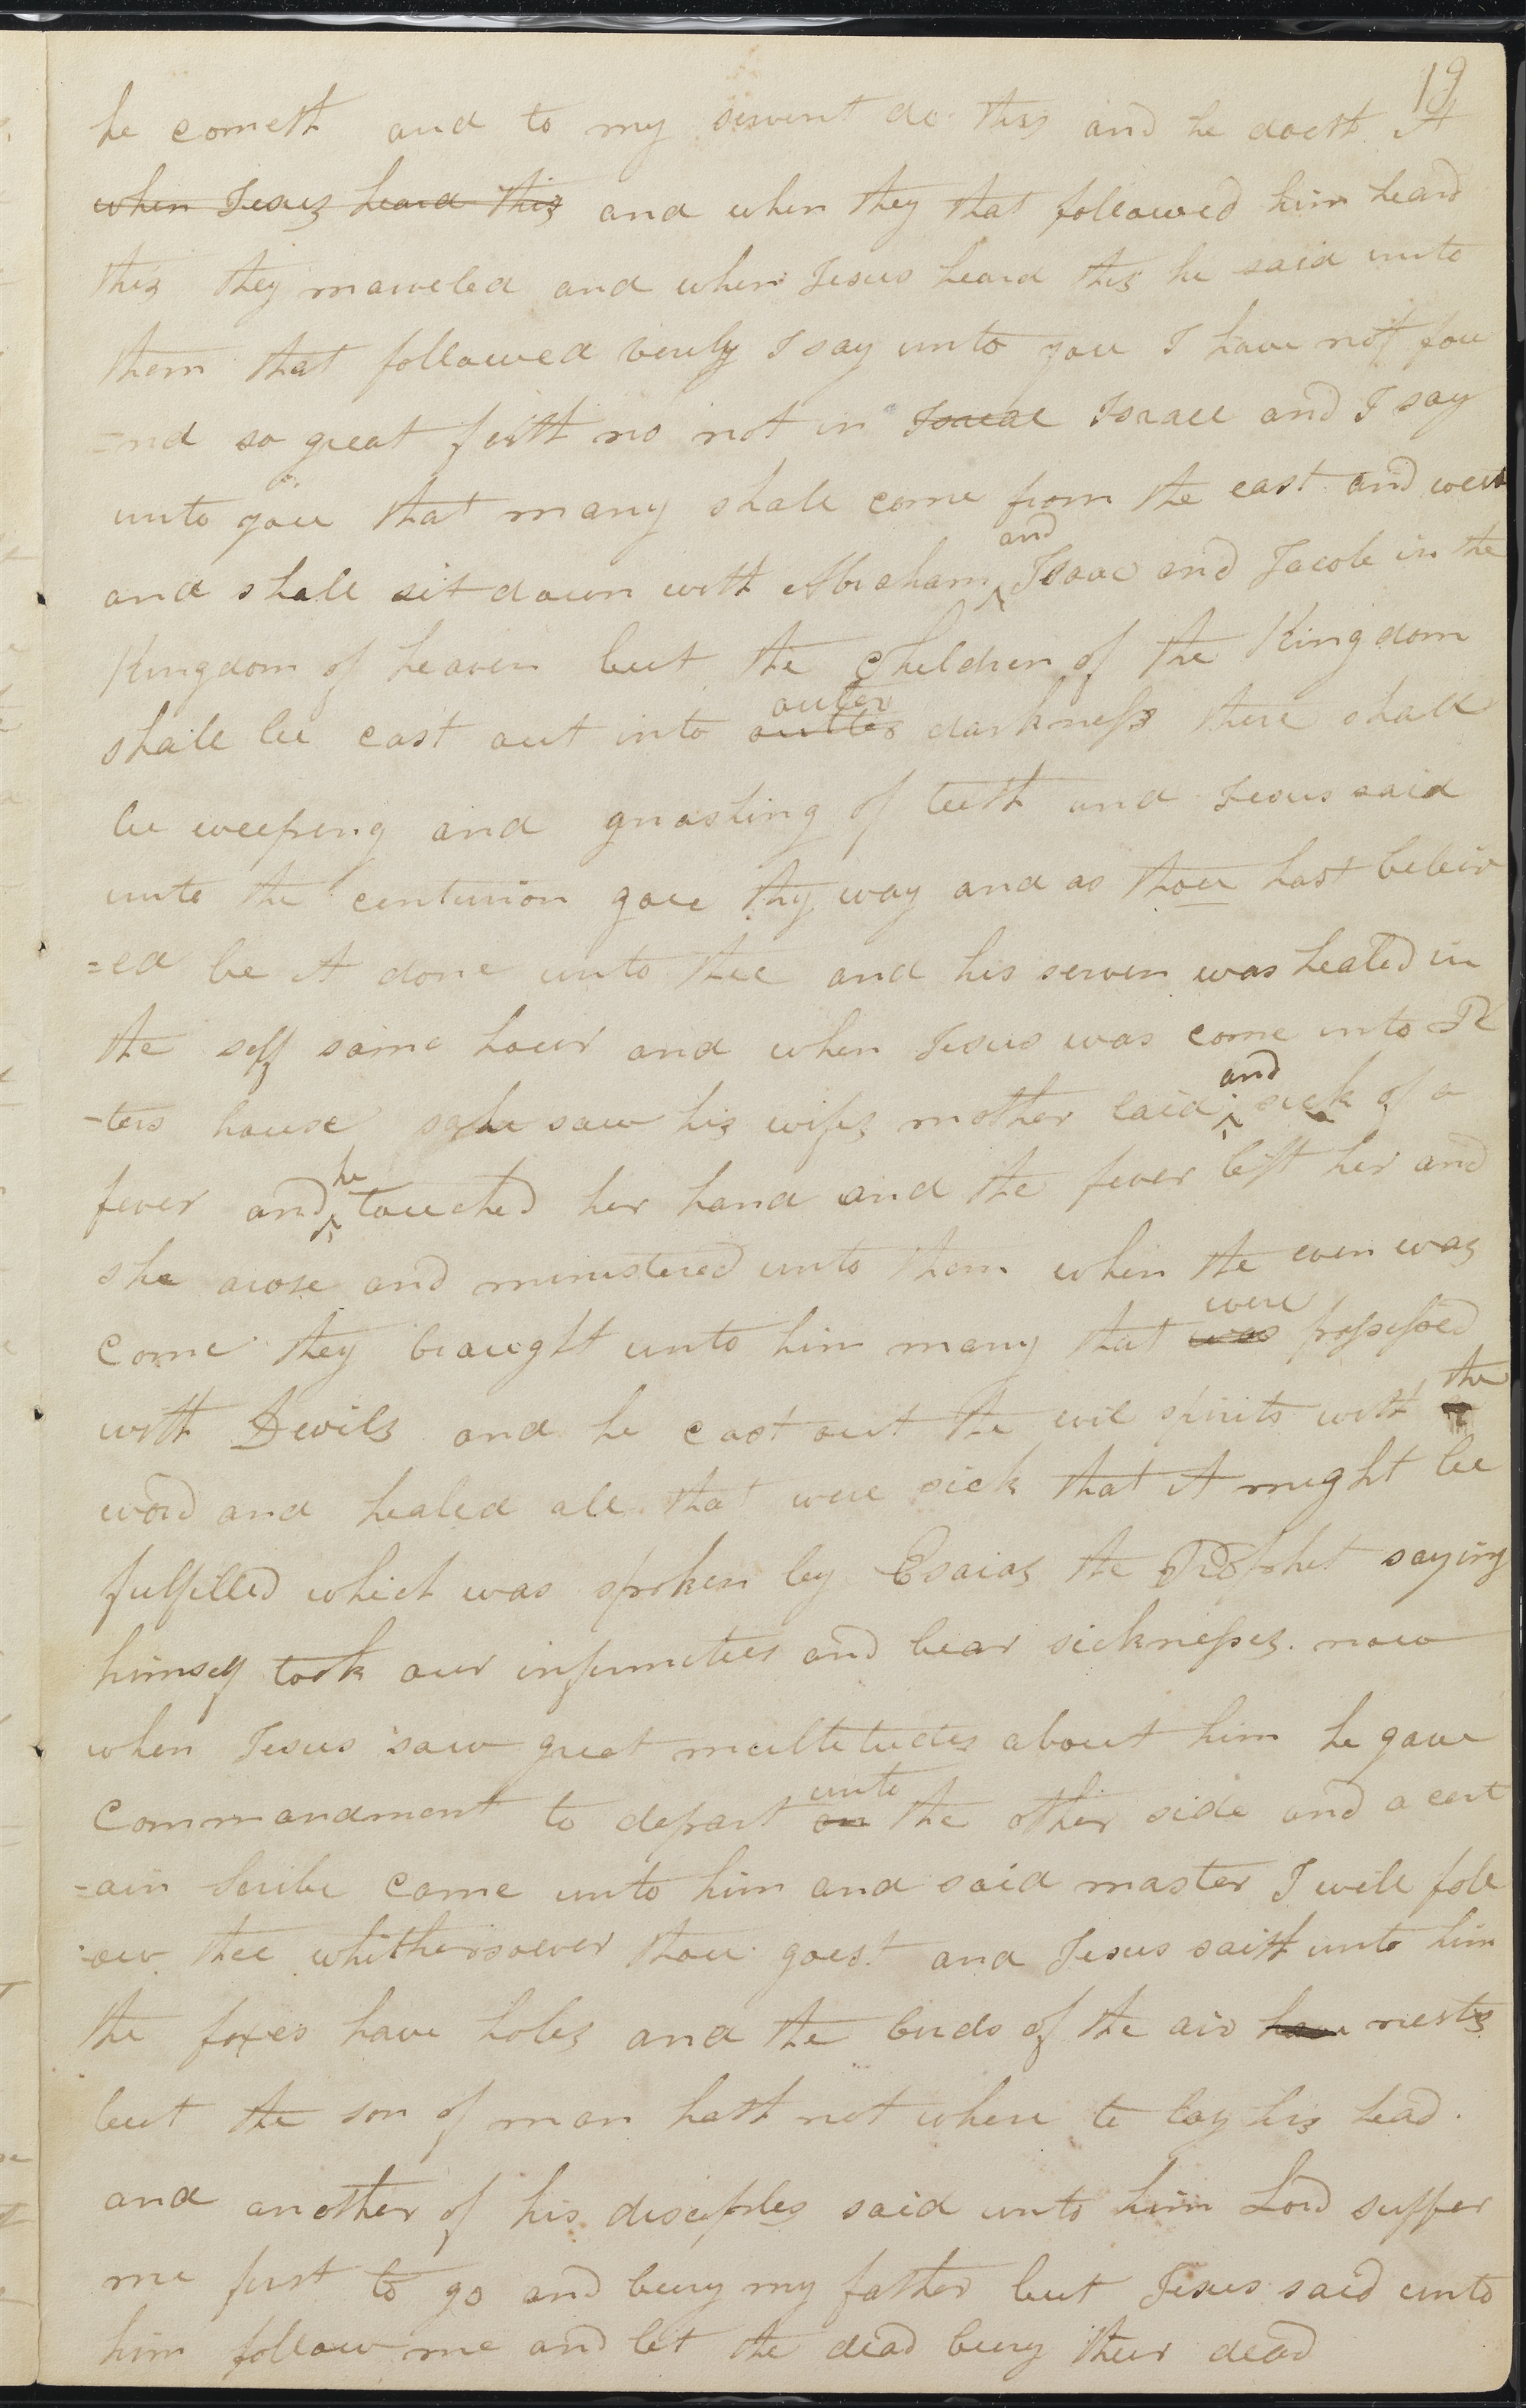 19
he cometh and to my servent do this and he doeth it
~~when Jesus heard this~~ and when they that followed him heard
this they marveled and when Jesus heard this he said unto
them that followed verily I say unto you I have not fou
=nd so great faith no not in ~~Isreal~~ Israel and I say
unto you that many shall come from the east and west
and
and shall sit down with Abraham ^ Isaac and Jacob in the
Kingdom of heaven but the Children of the Kingdom
outer
shall be cast out into ~~outter~~ darkness there shall
be weeping and gnashing of teeth and Jesus said
unto the centurion goe thy way and as thou hast beleiv
=ed be it done unto thee and his serven was healed in
the self same hour and when Jesus was come into Pe
and
-ters house he saw his wifes mother laid ^ sick of a
he
fever and ^ touched her hand and the fever left her and
she arose and ministered unto them when the even was
were
come they braught unto him many that ~~was~~ possessed
the
with Devils and he cast out the evil spirits with
word and healed all that were sick that it might be
fulfilled which was spoken by Esaias the Prophet saying
himself took our infirmities and bear sicknesses. now
when Jesus saw great multitudes about him he gave
unto
commandment to depart ~~on~~ the other side and a cert
=ain scribe came unto him and said master I will foll
=ow thee whithersoever thou goest and Jesus saith unto him
the foxes have holes and the birds of the air ~~have~~ nests
but the son of man hath not where to lay his head.
and another of his disciples said unto him Lord suffer
me first to go and bury my father but Jesus said unto
him follow me and let the dead bury their dead